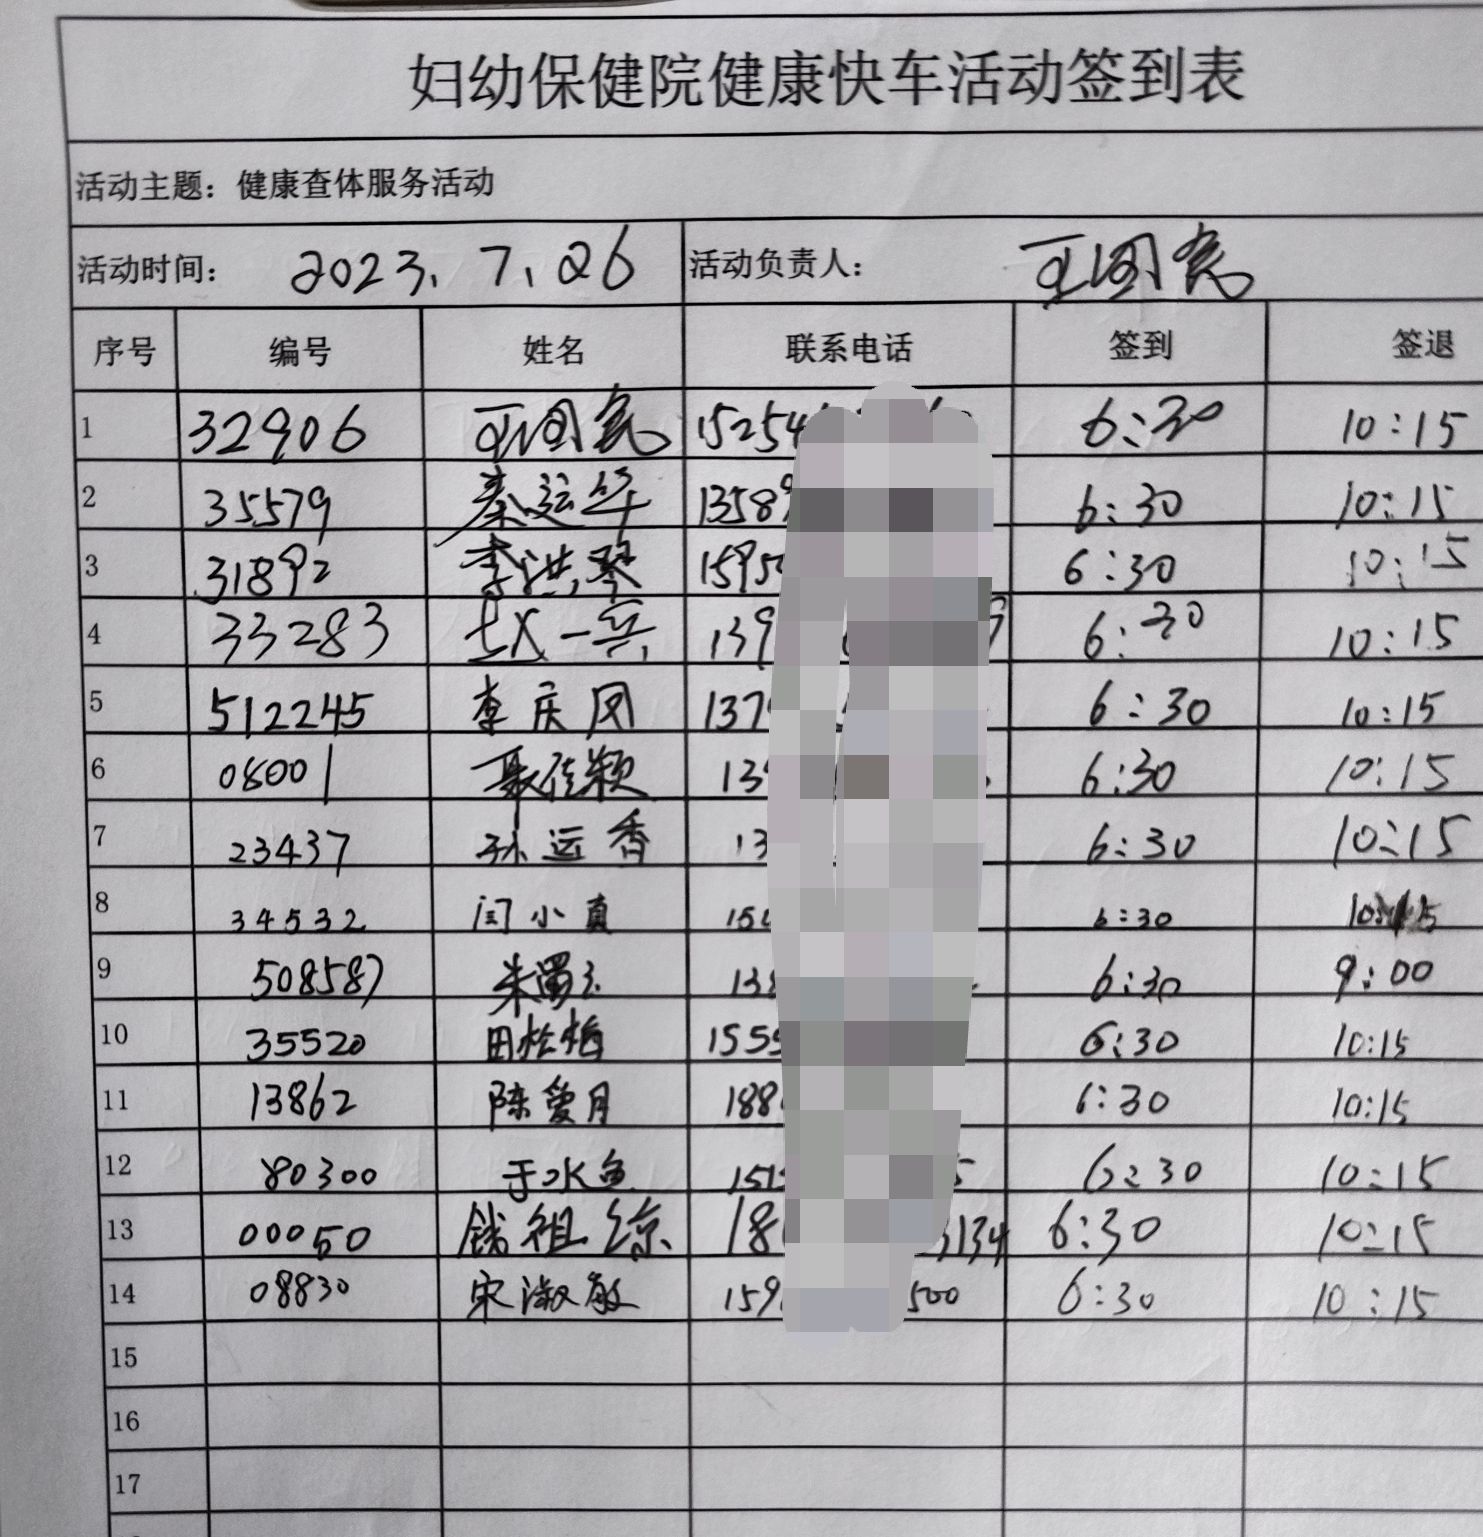 妇幼保健院健康快车活动签到表
活动主题：健康查体服务活动
活动时间： 2023.7.26 活动负责人：
序号 编号 姓名 联系电话 签到 签退
1 32906 15254 6:30 10:15
2 35579 秦运华 13589 6:30 10:15
3 31892 李洪琴 1595 6:30 10:15
4 33283 139 6:30 10:15
5 512245 李庆凤 137 6:30 10:15
6 08001 聂佳颖 13 6:30 10:15
7 23437 孙远香 13 6:30 10:15
8 34532 闫小真 15 6:30 10:15
9 508587 138 6:30 9:00
10 35520 155 6:30 10:15
11 13862 陈爱月 188 6:30 10:15
12 80300 于水鱼 151 6:30 10:15
13 00050 钱祖琼 18 3134 6:30 10:15
14 08830 宋淑敏 159 500 6:30 10:15
15
16
17